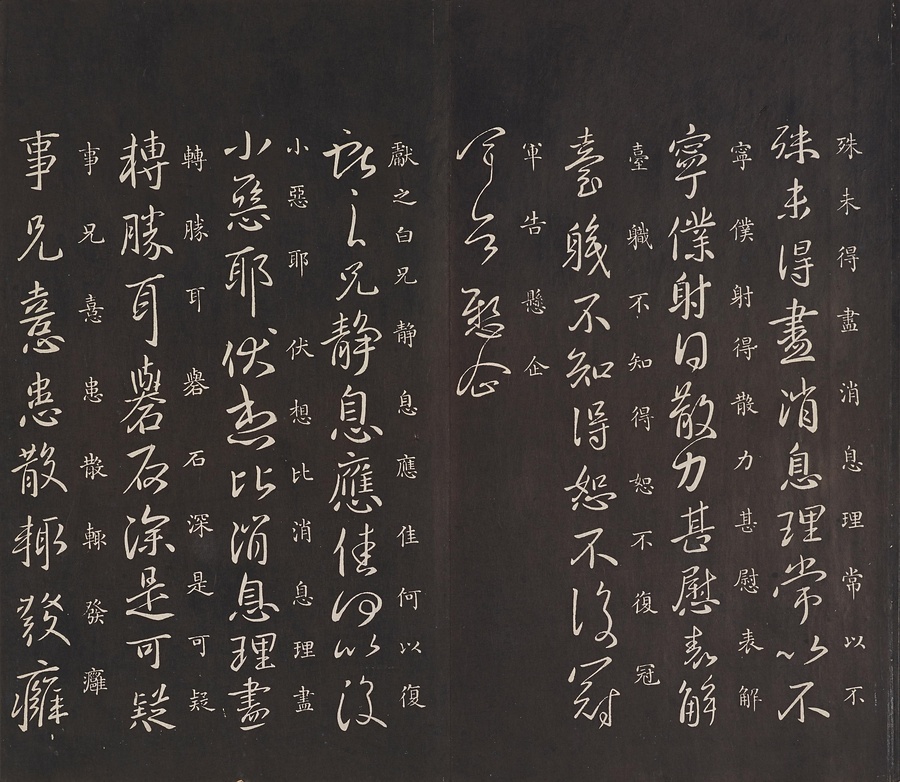 殊未得盡消息理常以不
殊未得盡消息理常以不
寧僕射得散力甚慰表解
寧僕射得散力甚慰表解
臺職不知得恕不復冠
臺職不知得恕不復冠
軍告懸企
軍告懸企
獻之白兄靜息應佳何以復
獻之白兄靜息應佳何以復
小惡耶伏想比消息理盡
小惡耶伏想比消息理盡
轉勝耳礜石深是可疑
轉勝耳礜石深是可疑
事兄憙患散輒發癰
事兄憙患散輒發癰